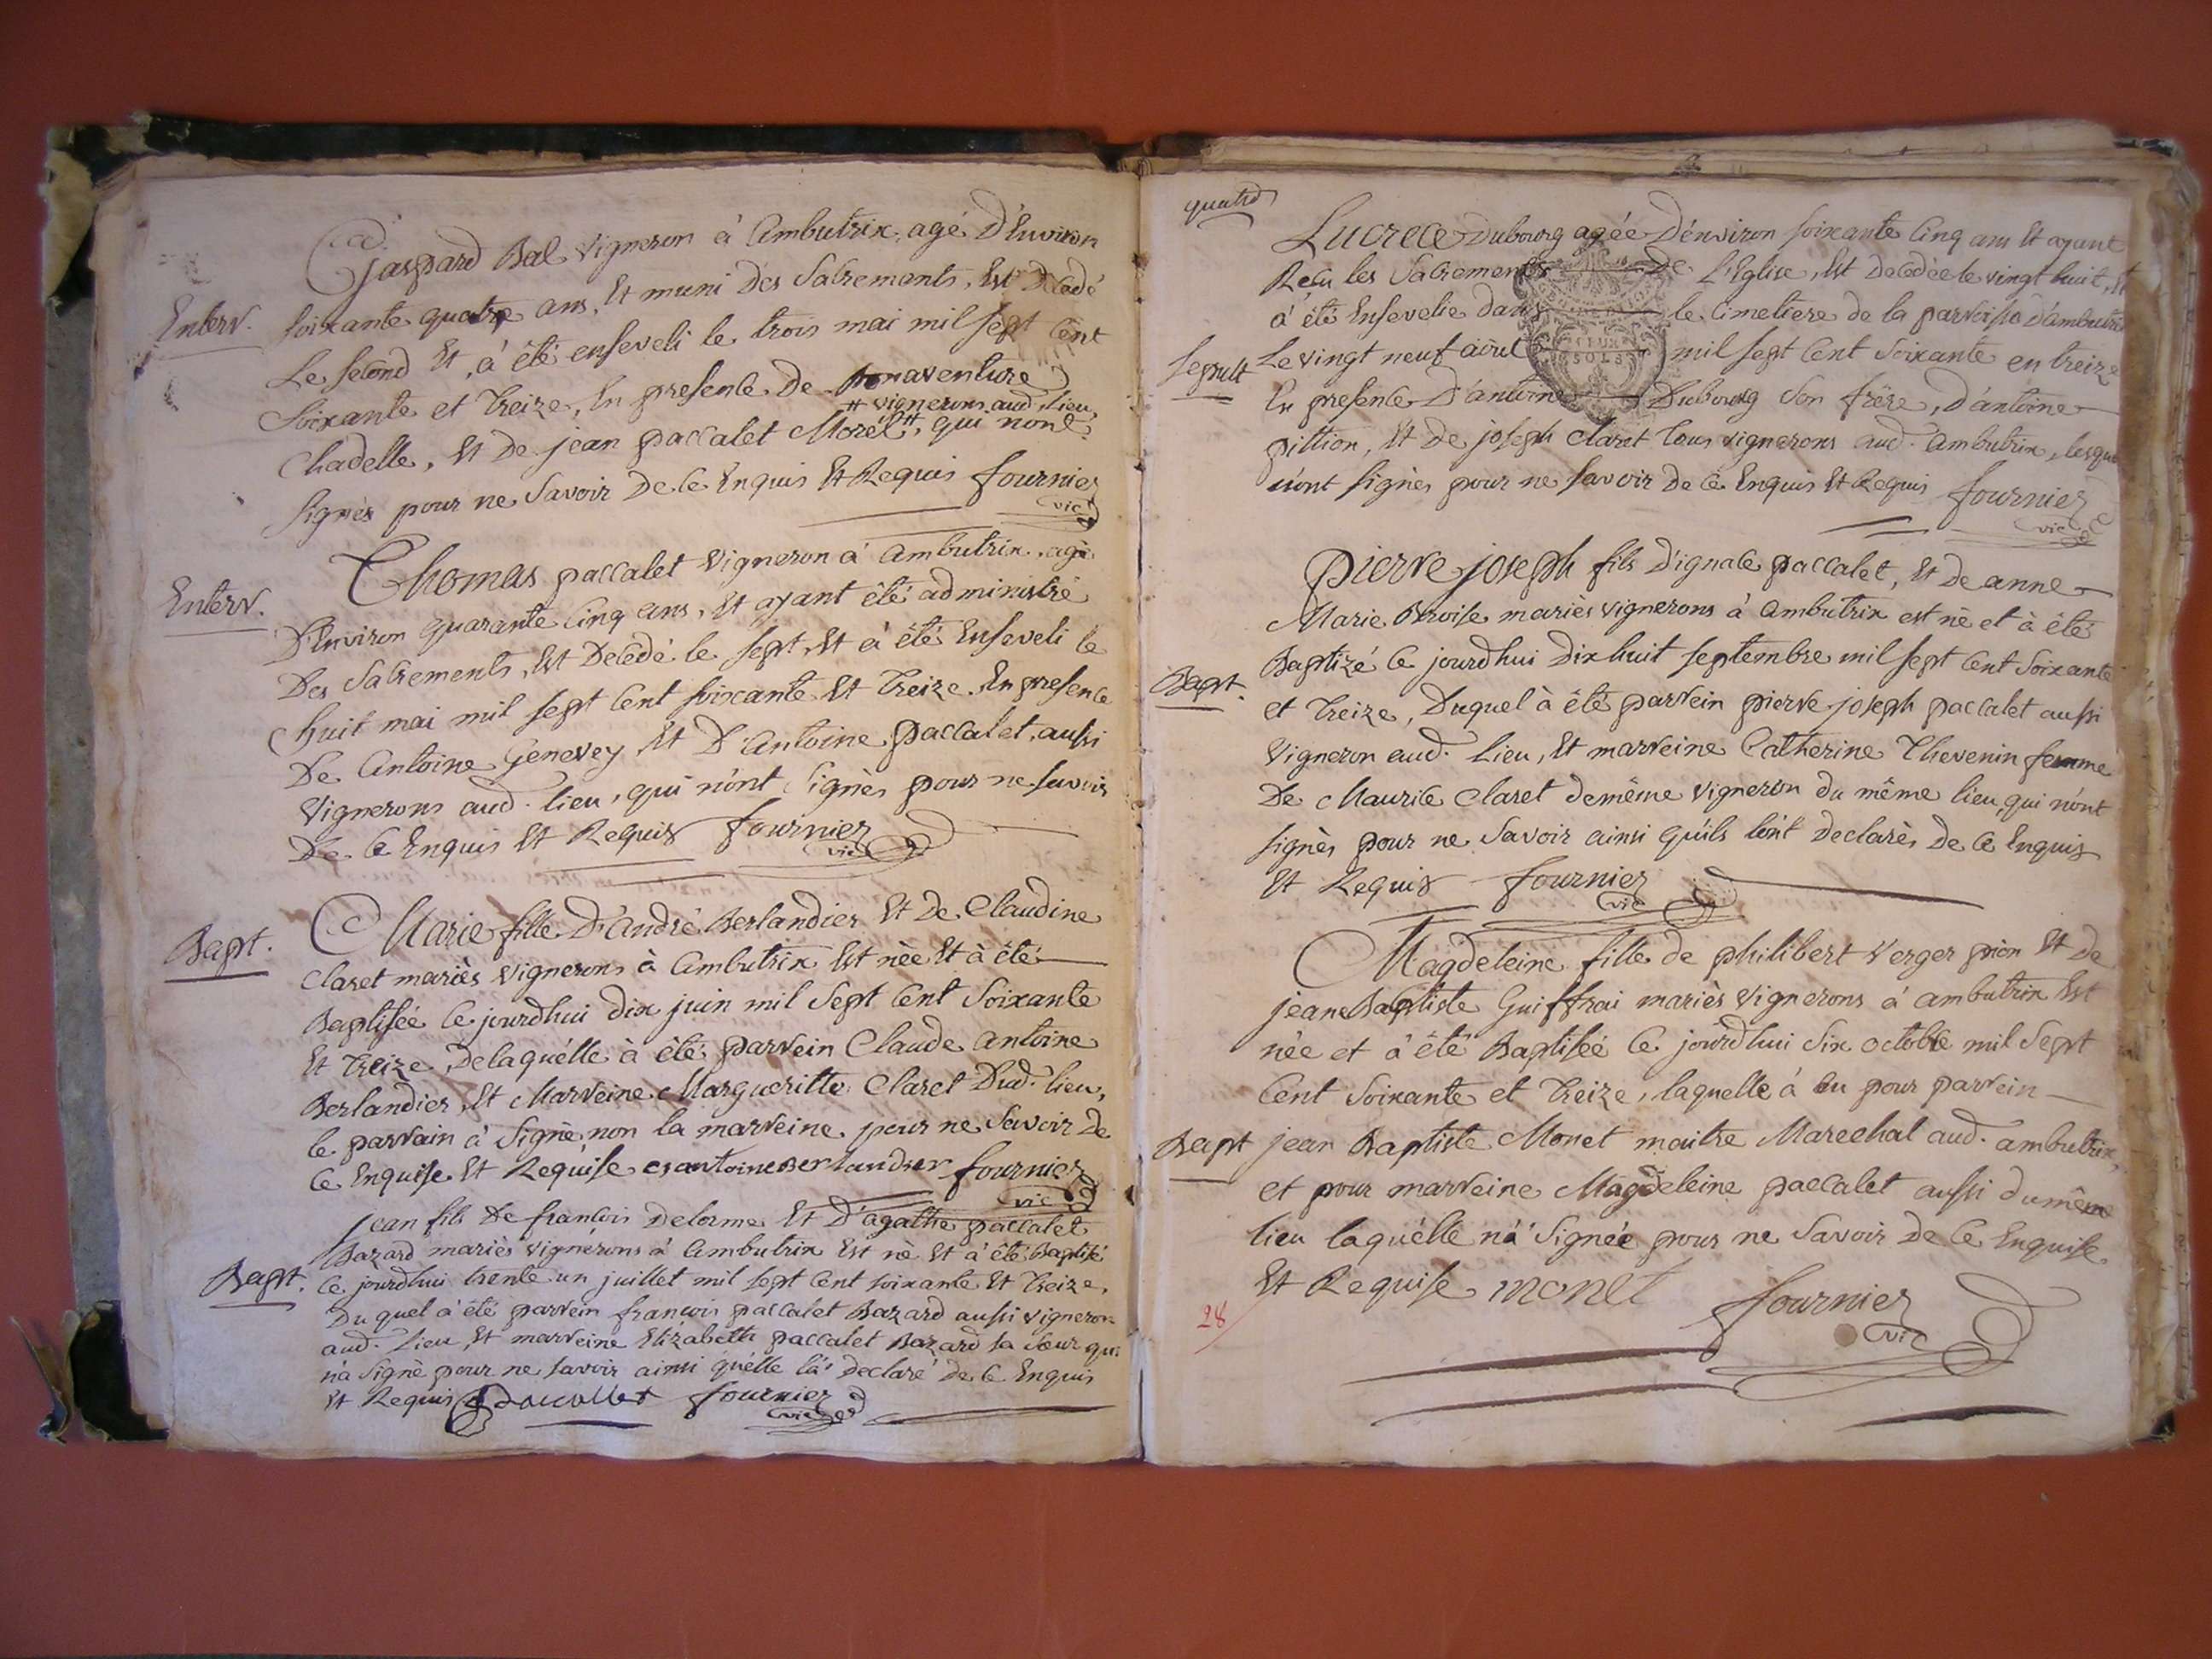 Gaspard Bal vigneron à Ambutrix, agé D'Environ
Enterr.
soixante quatre ans, Et muni Des Sacrements, Est Decedé
Le second Et, à été enseveli le trois mai mil sept Cent
Soixante et treize, En presence De Bonaventure
# vignerons aud. lieu,
Chadelle, Et De jean paccalet Morel #, qui nont
signès pour ne Savoir De Ce Enquis Et Requis fournier
vic
Thomas paccalet vigneron à ambutrix, agé
Enterr.
D'Environ quarante Cinq ans, Et ayant été administré
Des Sacrements, Est Decedé le sept, Et à été Enseveli le
huit mai mil sept Cent soixante Et treize. En presence
De Antoine Genevey Et D'Antoine paccalet, aussi
Vignerons aud. lieu, qui n'ont Signès pour ne savoir
De Ce Enquis Et Requis fournier
vic
Marie fille D'André Berlandier Et De Claudine
Bapt.
Claret mariès vignerons à Ambutrix Est née Et à été
Baptisée Ce jourdhui Dix juin mil Sept Cent Soixante
Et treize, Delaquélle à été parrein Claude antoine
Berlandier, Et Marreine Margueritte Claret Dud. lieu,
le parrain à Signé, non la marreine pour ne Savoir De
Ce Enquise Et Requise Berlandier fournier
vic
jean fils De francois Delorme Et D'agathe paccalet
Bazard mariès vignérons à Ambutrix Est né Et à été Baptisé
Bapt.
Ce jourdhui trente un juillet mil sept Cent soixante Et treize,
Du quel à été parrein françois paccalet Bazard aussi vigneron
aud. Lieu, Et marreine Elizabeth paccalet Bazard sa Sœur qui
n'à Signé pour ne savoir ainsi qu'elle l'à Declaré De Ce Enquis
Et Requis paccallet fournier
vic
quatre
Lucrece Dubourg agée D'environ soixante Cinq ans Et ayant
Recu les Sacrements De L'Eglise, Est Decedée le vingt huit, Et
à été Ensevelie dans le Cimetiere de la parroisse d'ambutrix
Sepult
Le vingt neuf août mil sept Cent soixante en treize
En presence D'antoine Dubourg Son frére, D'antoine
pittion, Et De joseph Claret tous vignerons aud. Ambutrix, lesquels
n'ont signès pour ne savoir De Ce Enquis Et Requis fournier
vic
Pierre joseph fils D'ignace paccalet, Et De anne
Marie mariès vignerons à Ambutrix est né et à été
Baptizé Ce jourdhui Dix huit septembre mil sept Cent soixante
Bapt.
et treize, Duquel à été parrein pierre joseph paccalet aussi
Vigneron aud. lieu, Et marreine Catherine Thevenin femme
De Maurice Claret demême vigneron du même lieu, qui n'ont
signès pour ne Savoir ainsi qu'ils l'ont declarès De Ce Enquis
Et Requis fournier
vic
Magdeleine fille de philibert Verger pion Et de
jeane Baptiste Guiffrai mariès vignerons à ambutrix Est
née et à été Baptisée Ce jourdhui Six octobre mil Sept
Cent Soixante et treize, laquelle à eu pour parrein
Bapt
jean Baptiste Monet maitre Marechal aud. ambutrix,
et pour marreine Magdeleine paccalet aussi du même
lieu laquélle n'à Signée pour ne Savoir De Ce Enquise
Et Requise monet fournier
vic
28